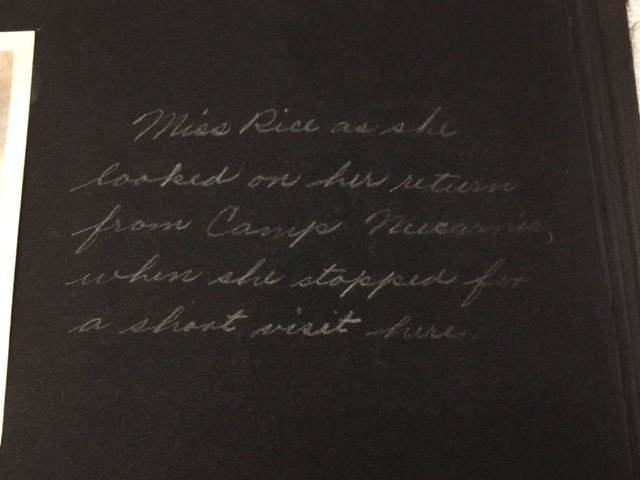 Miss Rice as she
looked on her return
from Camp
when she stopped for
a short visit here.